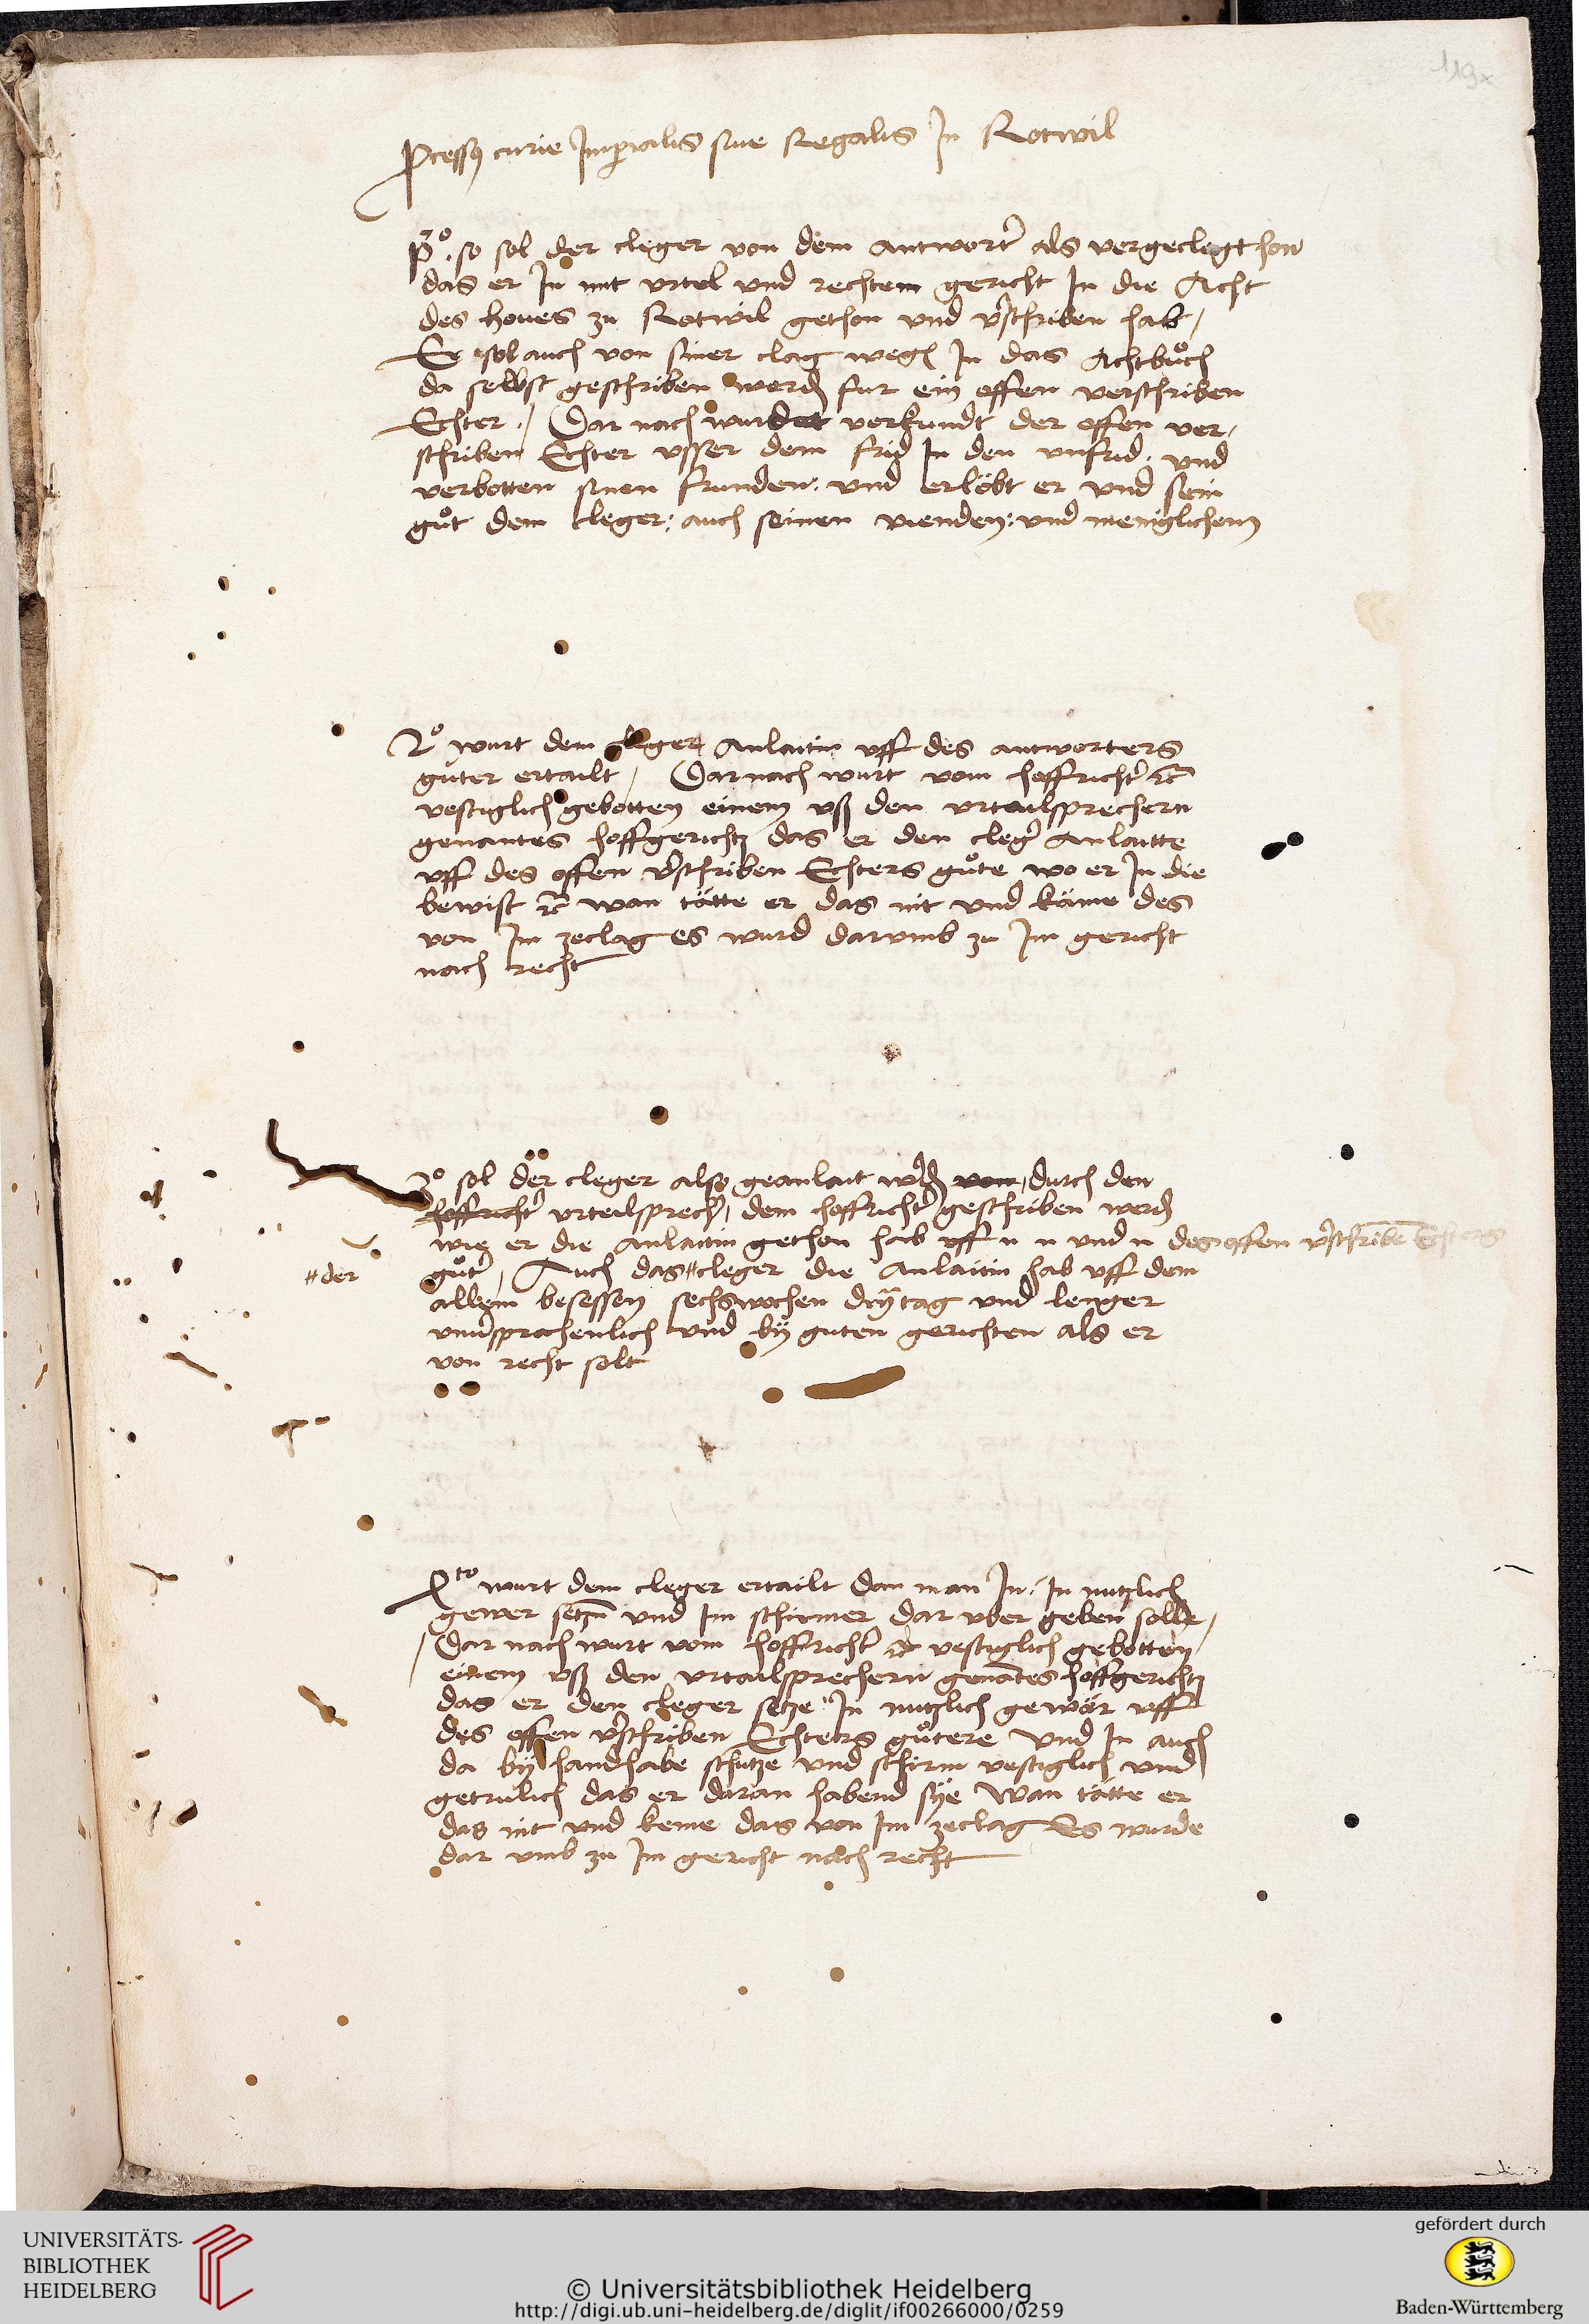 119x
Pcessꝯ curie Imperialis siue Regalis In Rotwil
p̄º so sol der cleger von dem antworter als vergeclegt hon
das er In mit vrtel vnd rechtem gericht In die Acht
des houes zu Rotwil gethon vnd v͛schriben hab /
Er sol auch von siner clag wegē In das Achtbůch
da selbst geschriben werdē fur ein offen verschriben
Echter / Dar nach wurdet verkundt der offen ver/
schriben Echter vsser dem frid In den vnfrid . vnd
verbotten sinen frunden . vnd erlöbt er vnd sein
gůt dem cleger : auch seinen vienden : vnd meniglichem
2º wurt dem cleger Anlaitin vff des antworters
guter ertailt / Dar nach wurt vom hoffricht͛ ꝛc̄
vestiglich gebotten einem vß den vrtailsprechern
genantes hoffgerichtz das er den cleg͛ Anlaitte
vff des offen v͛schriben Echters gůte wo er In die
bewist ꝛc̄ wan tätte er das nit vnd käme des
von Im zeclag es wurd darumb zu Im gericht
nach recht
3º sol der cleger also geanlait w͛dē von / durch den
hoffricht͛ vrteilsprech͛ / dem hoffricht͛ geschriben werdē
wie er die Anlaitin gethon hab vff n n vnd n des offen v͛schribē Echters
#der gůt͛ / Auch das # cleger die Anlaitin hab vff dem
allem besessen sechswochen drÿ tag vnd lenger
vnu͛sprochenlich vnd bÿ guten gerichten als er
von recht solt
4to wurt dem cleger ertailt dan man In . In nutzlich
gewer setzn̄ vnd Im schirmer dar vber geben solle /
/ Dar nach wurt vom hoffricht͛ ꝛc vestiglich gebotten
einem vß den vrtailsprechern genātes hoffgerichtz
das er den cleger setze In nutzlich gewär vff
des offen v͛schriben Echters gůtere vnd In auch
da bÿ handhabe schutze vnd schirm vestiglich vnd
getrulich das er daran habend sÿe Wan tätte er
das nit vnd keme das von Im zeclag Es wurde
dar vmb zu Im gericht nach recht
UNIVERSITÄTS-
BIBLIOTHEK
HEIDELBERG
© Universitätsbibliothek Heidelberg
http://digi.ub.uni-heidelberg.de/diglit/if00266000/0259
gefördert durch
Baden-Württemberg